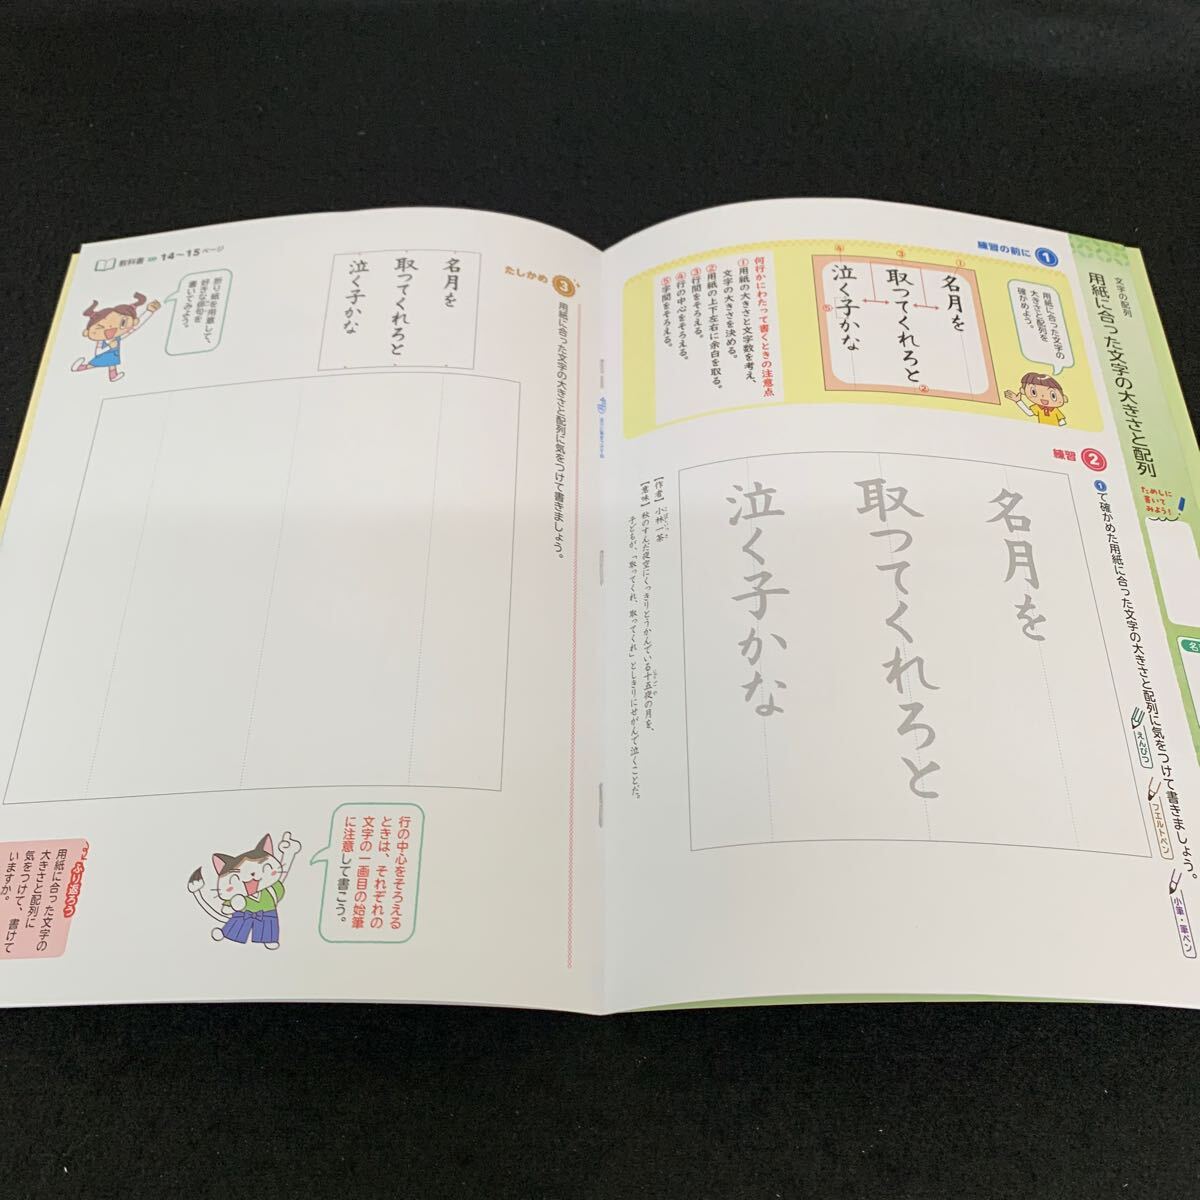 文字の配列
用紙に合った文字の大きさと配列
ためしに
書いて
みよう!
名
練習の前に 1
用紙に合った文字の
大きさと配列を
確かめよう。
①
③
④
名月を
取ってくれろと
泣く子かな
⑤
②
何行かにわたって書くときの注意点
①用紙の大きさと文字数を考え、
文字の大きさを決める。
②用紙の上下左右に余白を取る。
③行間をそろえる。
④行の中心をそろえる。
⑤字間をそろえる。
練習 2
①で確かめた用紙に合った文字の大きさと配列に気をつけて書きましょう。
えんぴつ
フェルトペン
小筆・筆ペン
名月を
取ってくれろと
泣く子かな
【作者】小林一茶
【意味】秋のすんだ夜空にくっきりとうかんでいる十五夜の月を、
子どもが、「取ってくれ、取ってくれ」としきりにせがんで泣くことだ。
たしかめ 3
用紙に合った文字の大きさと配列に気をつけて書きましょう。
名月を
取ってくれろと
泣く子かな
教科書 14〜15ページ
折り紙を用意して、
好きな俳句を
書いてみよう。
行の中心をそろえる
ときは、それぞれの
文字の一画目の始筆
に注意して書こう。
ふり返ろう
用紙に合った文字の
大きさと配列に
気をつけて、書けて
いますか。